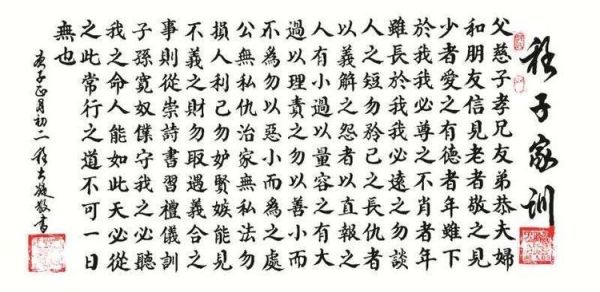 程子家訓
父慈子孝兄友弟恭夫婦
和朋友信見老者敬之見
少者愛之有德者年雖下
於我我必尊之不肖者年
雖長於我我必遠之勿談
人之短勿矜己之長仇者
以義解之怨者以直報之
人有小過以量容之有大
過以理責之勿以善小而
不為勿以惡小而為之處
公無私仇治家無私法勿
損人利己勿妒賢嫉能見
不義之財勿取遇義合之
事則從崇詩書習禮儀訓
子孫寬奴僕守我之必聽
我之命人能如此天必從
之此常行之道不可一日
無也
庚子正月初二程大敬書